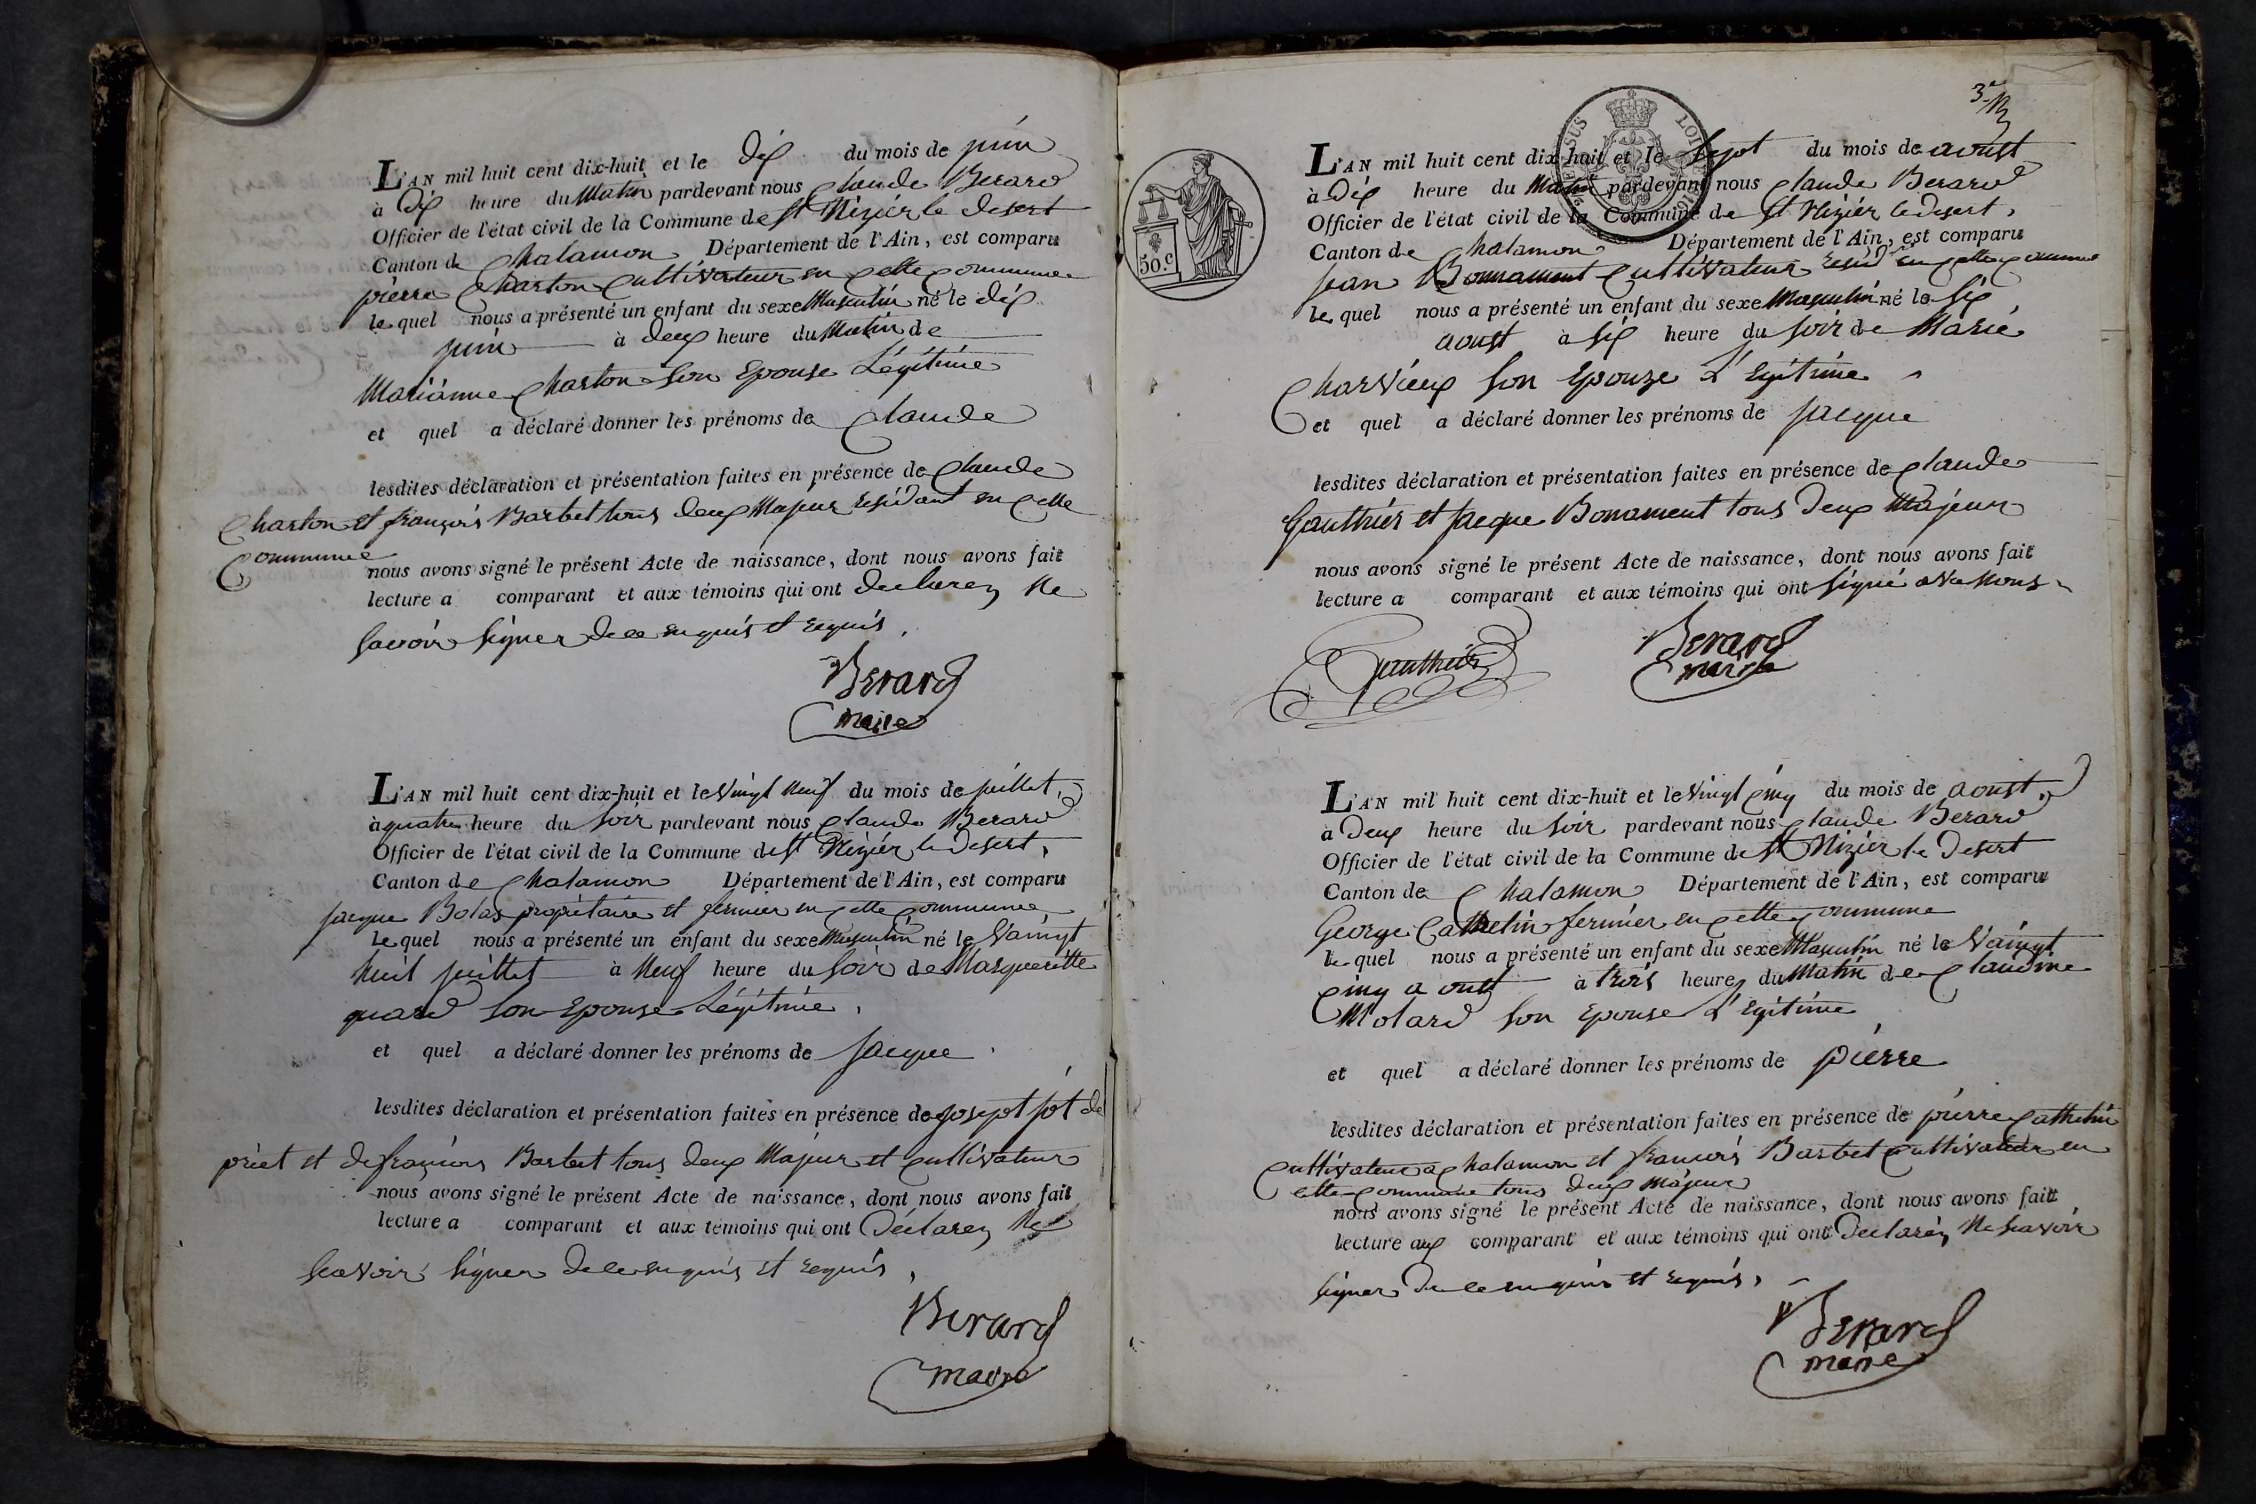 L'AN mil huit cent dix-huit et le dix du mois de juin
à dix heure du Matin pardevant nous Claude Berard
Officier de l'état civil de la Commune de St Nizier le desert
Canton de Chalamon Département de l'Ain, est comparu
pierre Charton Cultivateur en Cette Commune
lequel nous a présenté un enfant du sexe Masculin né le dix
juin à deux heure du Matin de
Marianne Charton Son Epouse Légitime
et quel a déclaré donner les prénoms de Claude
lesdites déclaration et présentation faites en présence de Claude
Charton et françois Barbet tous deux Majeur residant en Cette
Commune
nous avons signé le présent Acte de naissance, dont nous avons fait
lecture a comparant et aux témoins qui ont declarez Ne
Savoir Signer de ce enquis et requis.
Berard
maire
L'AN mil huit cent dix-huit et le Vingt Neuf du mois de juillet,
à quatre heure du Soir pardevant nous Claude Berard
Officier de l'état civil de la Commune de St Nizier le desert,
Canton de Chalamon Département de l'Ain, est comparu
jacque Bolas propriétaire et fermier en Cette Commune
lequel nous a présenté un enfant du sexe Masculin né le Vaingt
huit juillet à Neuf heure du Soir de Margueritte
quard Son Epouse Légitime,
et quel a déclaré donner les prénoms de Jacque
lesdites déclaration et présentation faites en présence de
priet et de françois Barbet tous deux Majeur et Cultivateur
nous avons signé le présent Acte de naissance, dont nous avons fait
lecture a comparant et aux témoins qui ont Déclarez Ne
Scavoir Signer de ce enquis et requis,
Berard
maire
3e
50.c
L'AN mil huit cent dix-huit et le Sept du mois de aoust
à dix heure du Matin pardevant nous Claude Berard
Officier de l'état civil de la Commune de St Nizier le desert,
Canton de Chalamon Département de l'Ain, est comparu
jean Bonnament Cultivateur resid en Cette Commune
lequel nous a présenté un enfant du sexe Masculin né le Six
aoust à Six heure du Soir de Marie
Charvieux Son Epouze L'Egitime
et quel a déclaré donner les prénoms de Jacque
lesdites déclaration et présentation faites en présence de Claude
Gauthier et Jacque Bonament tous deux Majeur
nous avons signé le présent Acte de naissance, dont nous avons fait
lecture a comparant et aux témoins qui ont Signé
Gauthier Berard
maire
L'AN mil huit cent dix-huit et le Vingt Cinq du mois de aoust,
à Deux heure du Soir pardevant nous Claude Berard
Officier de l'état civil de la Commune de St Nizier le Desert
Canton de Chalamon Département de l'Ain, est comparu
George Cathelin fermier en Cette Commune
lequel nous a présenté un enfant du sexe Masculin né le Vaingt
Cinq aoust à trois heure du Matin de Claudine
Molard Son Epouse L'Egitime
et quel a déclaré donner les prénoms de pierre
lesdites déclaration et présentation faites en présence de pierre Cathelin
Cultivateur a Chalamon et francois Barbet Cultivateur en
Cette Commune tous deux Majeur
nous avons signé le présent Acte de naissance, dont nous avons fait
lecture aux comparant et aux témoins qui ont Declarez Ne Scavoir
Signer de ce enquis et requis,
Berard
maire